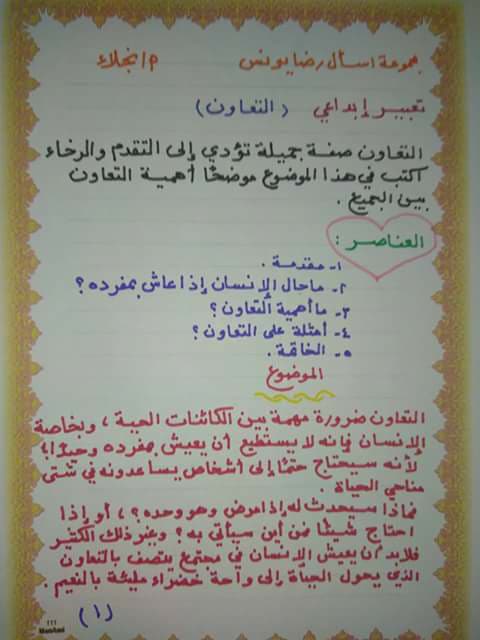 مجموعة اسأل رضا يونس م/نجلاء
تعبير إبداعي (التعاون)
التعاون صفة جميلة تؤدي إلى التقدم والرخاء
كتب في هذا الموضوع موضحًا أهمية التعاون
بين الجميع .
العناصر :
١- مقدمة .
٢- ماحال الإنسان إذا عاش بمفرده ؟
٣- ما أهمية التعاون ؟
٤- أمثلة على التعاون ؟
٥- الخاتمة .
الموضوع
التعاون ضرورة مهمة بين الكائنات الحية ، وبخاصة
الإنسان فإنه لا يستطيع أن يعيش بمفرده وحيدًا ؛
لأنه سيحتاج حتمًا إلى أشخاص يساعدونه في شتى
مناحي الحياة .
فماذا سيحدث له إذا مرض وهو وحده ؟ ، أو إذا
احتاج شيئًا فمن أين سيأتي به ؟ وغير ذلك الكثير
فلابد أن يعيش الإنسان في مجتمع يتصف بالتعاون
الذي يحول الحياة إلى واحة خضراء مليئة بالنعيم .
(١)